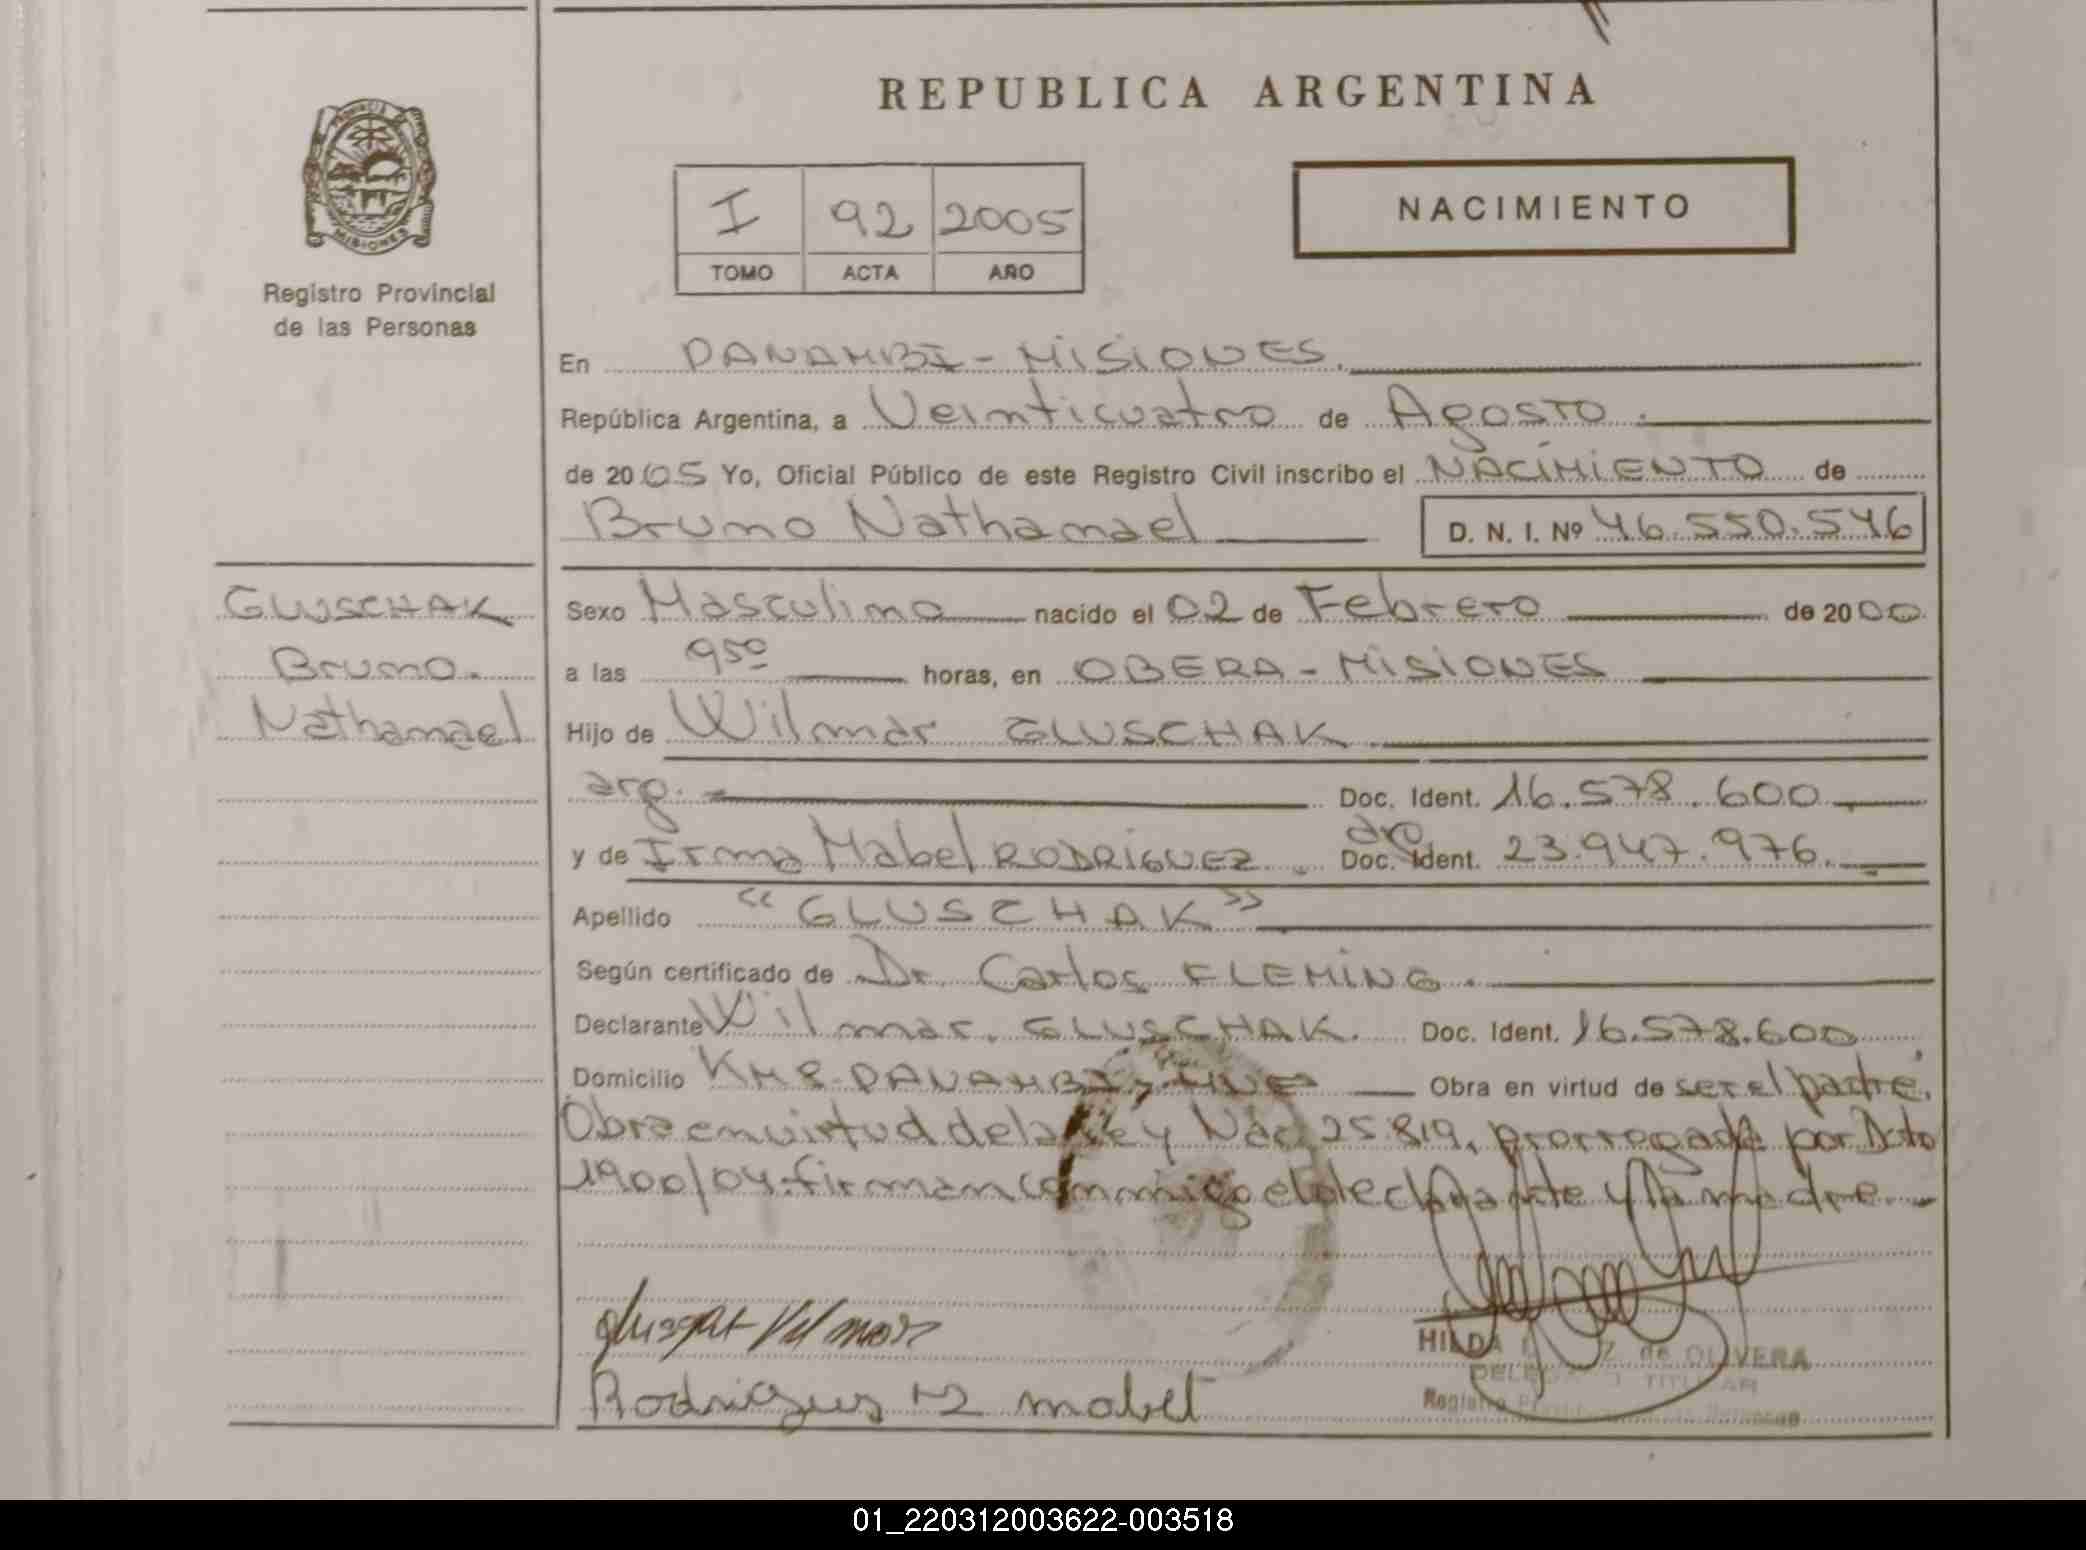 REPUBLICA ARGENTINA
PROVINCIA
MISIONES
Registro Provincial
de las Personas
I 92 2005
TOMO ACTA AÑO
NACIMIENTO
En PANAMBI - MISIONES.
República Argentina, a Veinticuatro de Agosto.
de 2005 Yo, Oficial Público de este Registro Civil inscribo el NACIMIENTO de
Bruno Nathanael D. N. I. Nº 46.550.546
GLUSCHAK
Bruno.
Nathanael
Sexo Masculino nacido el 02 de Febrero de 2000
a las 950 horas, en OBERA - MISIONES
Hijo de Wilmar GLUSCHAK
arg. Doc. Ident. 16.578.600
y de Irma Mabel RODRIGUEZ Doc. Ident. 23.947.976.
Apellido "GLUSCHAK"
Según certificado de Dr. Carlos FLEMING.
Declarante Wilmar GLUSCHAK. Doc. Ident. 16.578.600
Domicilio KM 8 PANAMBI Obra en virtud de ser el padre.
Obra en virtud de la Ley Nac. 25.819, prorrogada por Dcto
1900/04. firman conmigo el declarante y la madre.
Wilmar
HILDA de OLIVERA
TITULAR
Rodrigues mabel
Registro
01_220312003622-003518